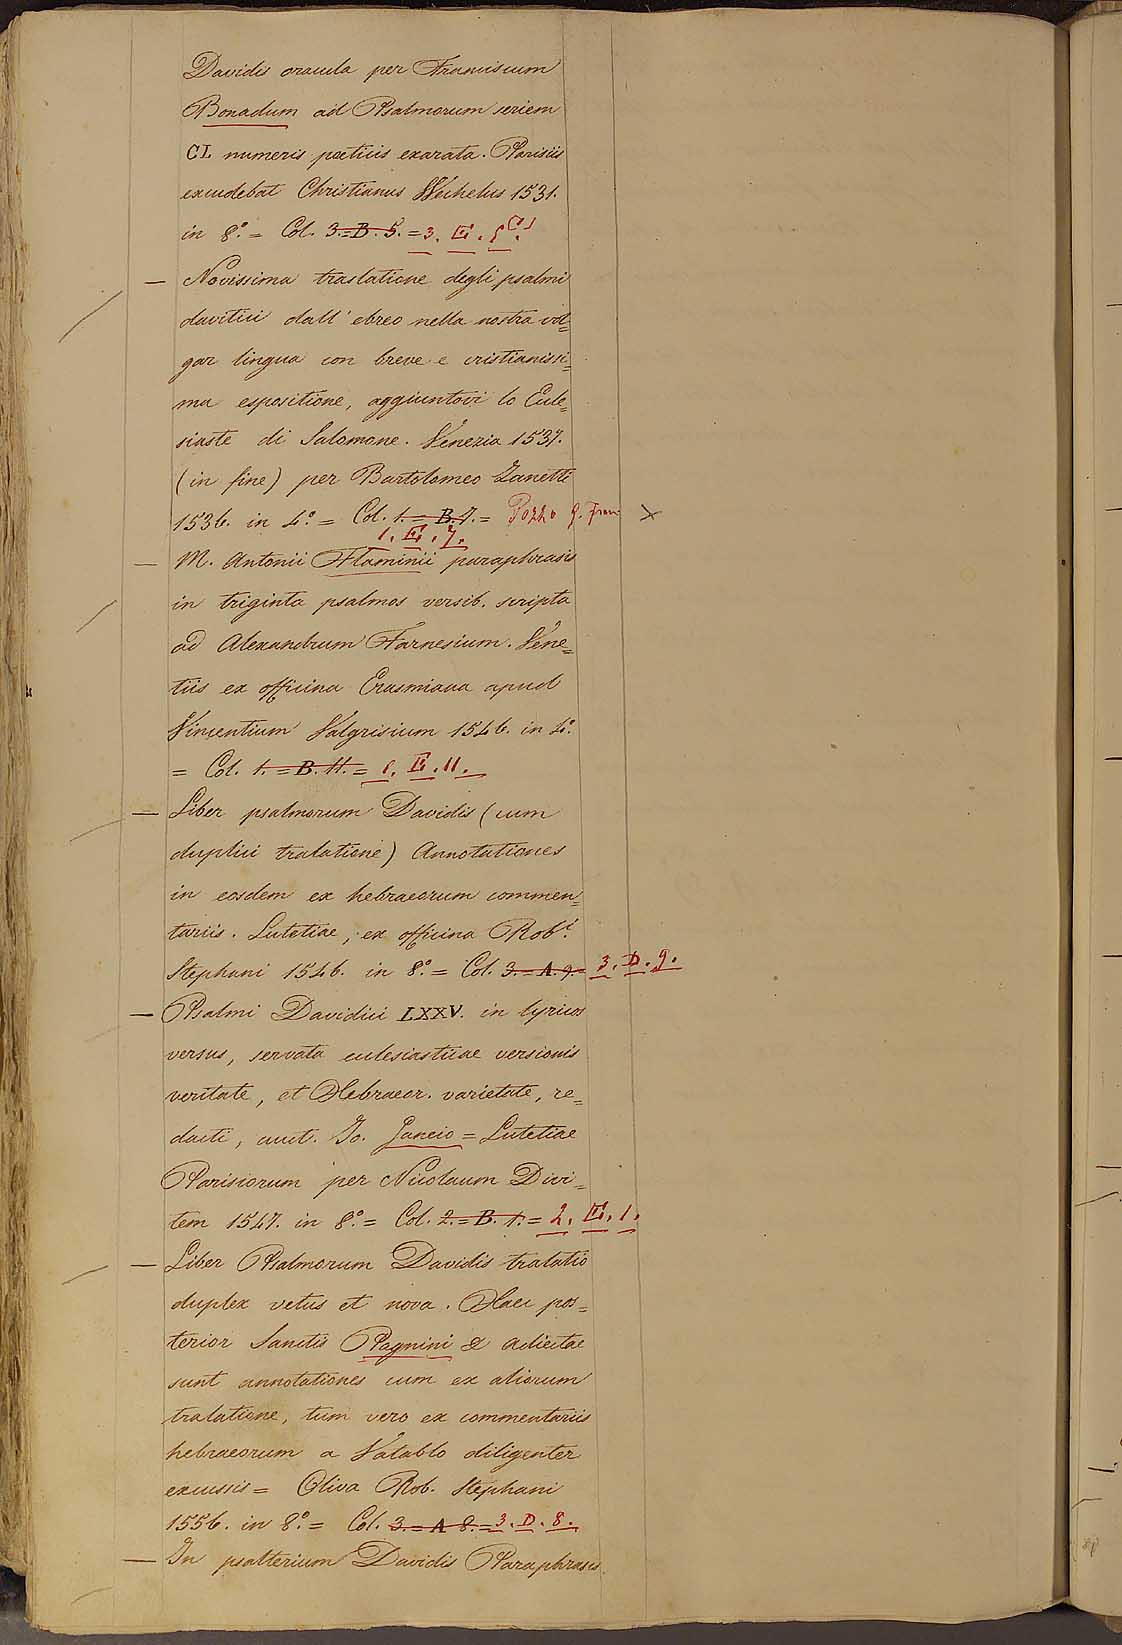 Davidis oracula per Franciscum
Bonadum ad Psalmorum seriem
CL numeris poeticis exarata. Parisiis
excudebat Christianus Wechelus 1531.
in 8.° = Col. 3. = B. 5. = 3. E. 5.
— Novissima traslatione degli psalmi
davitici dall' ebreo nella nostra vol=
gar lingua con breve e cristianissi=
ma espositione, aggiuntovi lo Eccle=
siaste di Salomone. Venezia 1537.
(in fine) per Bartolomeo Zanetti
1536. in 4.° = Col. 1. = B. 7. = Pozzo
1. E. 7.
— M. Antonii Flaminii paraphrasis
in triginta psalmos versib. scripta
ad Alexandrum Farnesium. Vene=
tiis ex officina Erasmiana apud
Vincentium Valgrisium 1546. in 4.°
= Col. 1. = B. 11. = 1. E. 11.
— Liber psalmorum Davidis (cum
duplici tralatione) Annotationes
in eosdem ex hebraeorum commen=
tariis. Lutetiae, ex officina Rob.i
Stephani 1546. in 8.° = Col. 3. = A. 9. = 3. D. 9.
— Psalmi Davidici LXXV. in lyricos
versus, servata ecclesiasticae versionis
veritate, et Hebraeor. varietate, re=
dacti, auct. Jo. Ganeio = Lutetiae
Parisiorum per Nicolaum Divi=
tem 1547. in 8.° = Col. 2. = B. 1. = 2. E. 1.
— Liber Psalmorum Davidis tralatio
duplex vetus et nova. Haec pos=
terior Sanctis Pagnini & adiectae
sunt annotationes cum ex aliorum
tralatione, tum vero ex commentariis
hebraeorum a Vatablo diligenter
excussis = Oliva Rob. Stephani
1556. in 8.° = Col. 3. = A 8. = 3. D. 8.
— In psalterium Davidis Paraphrasis